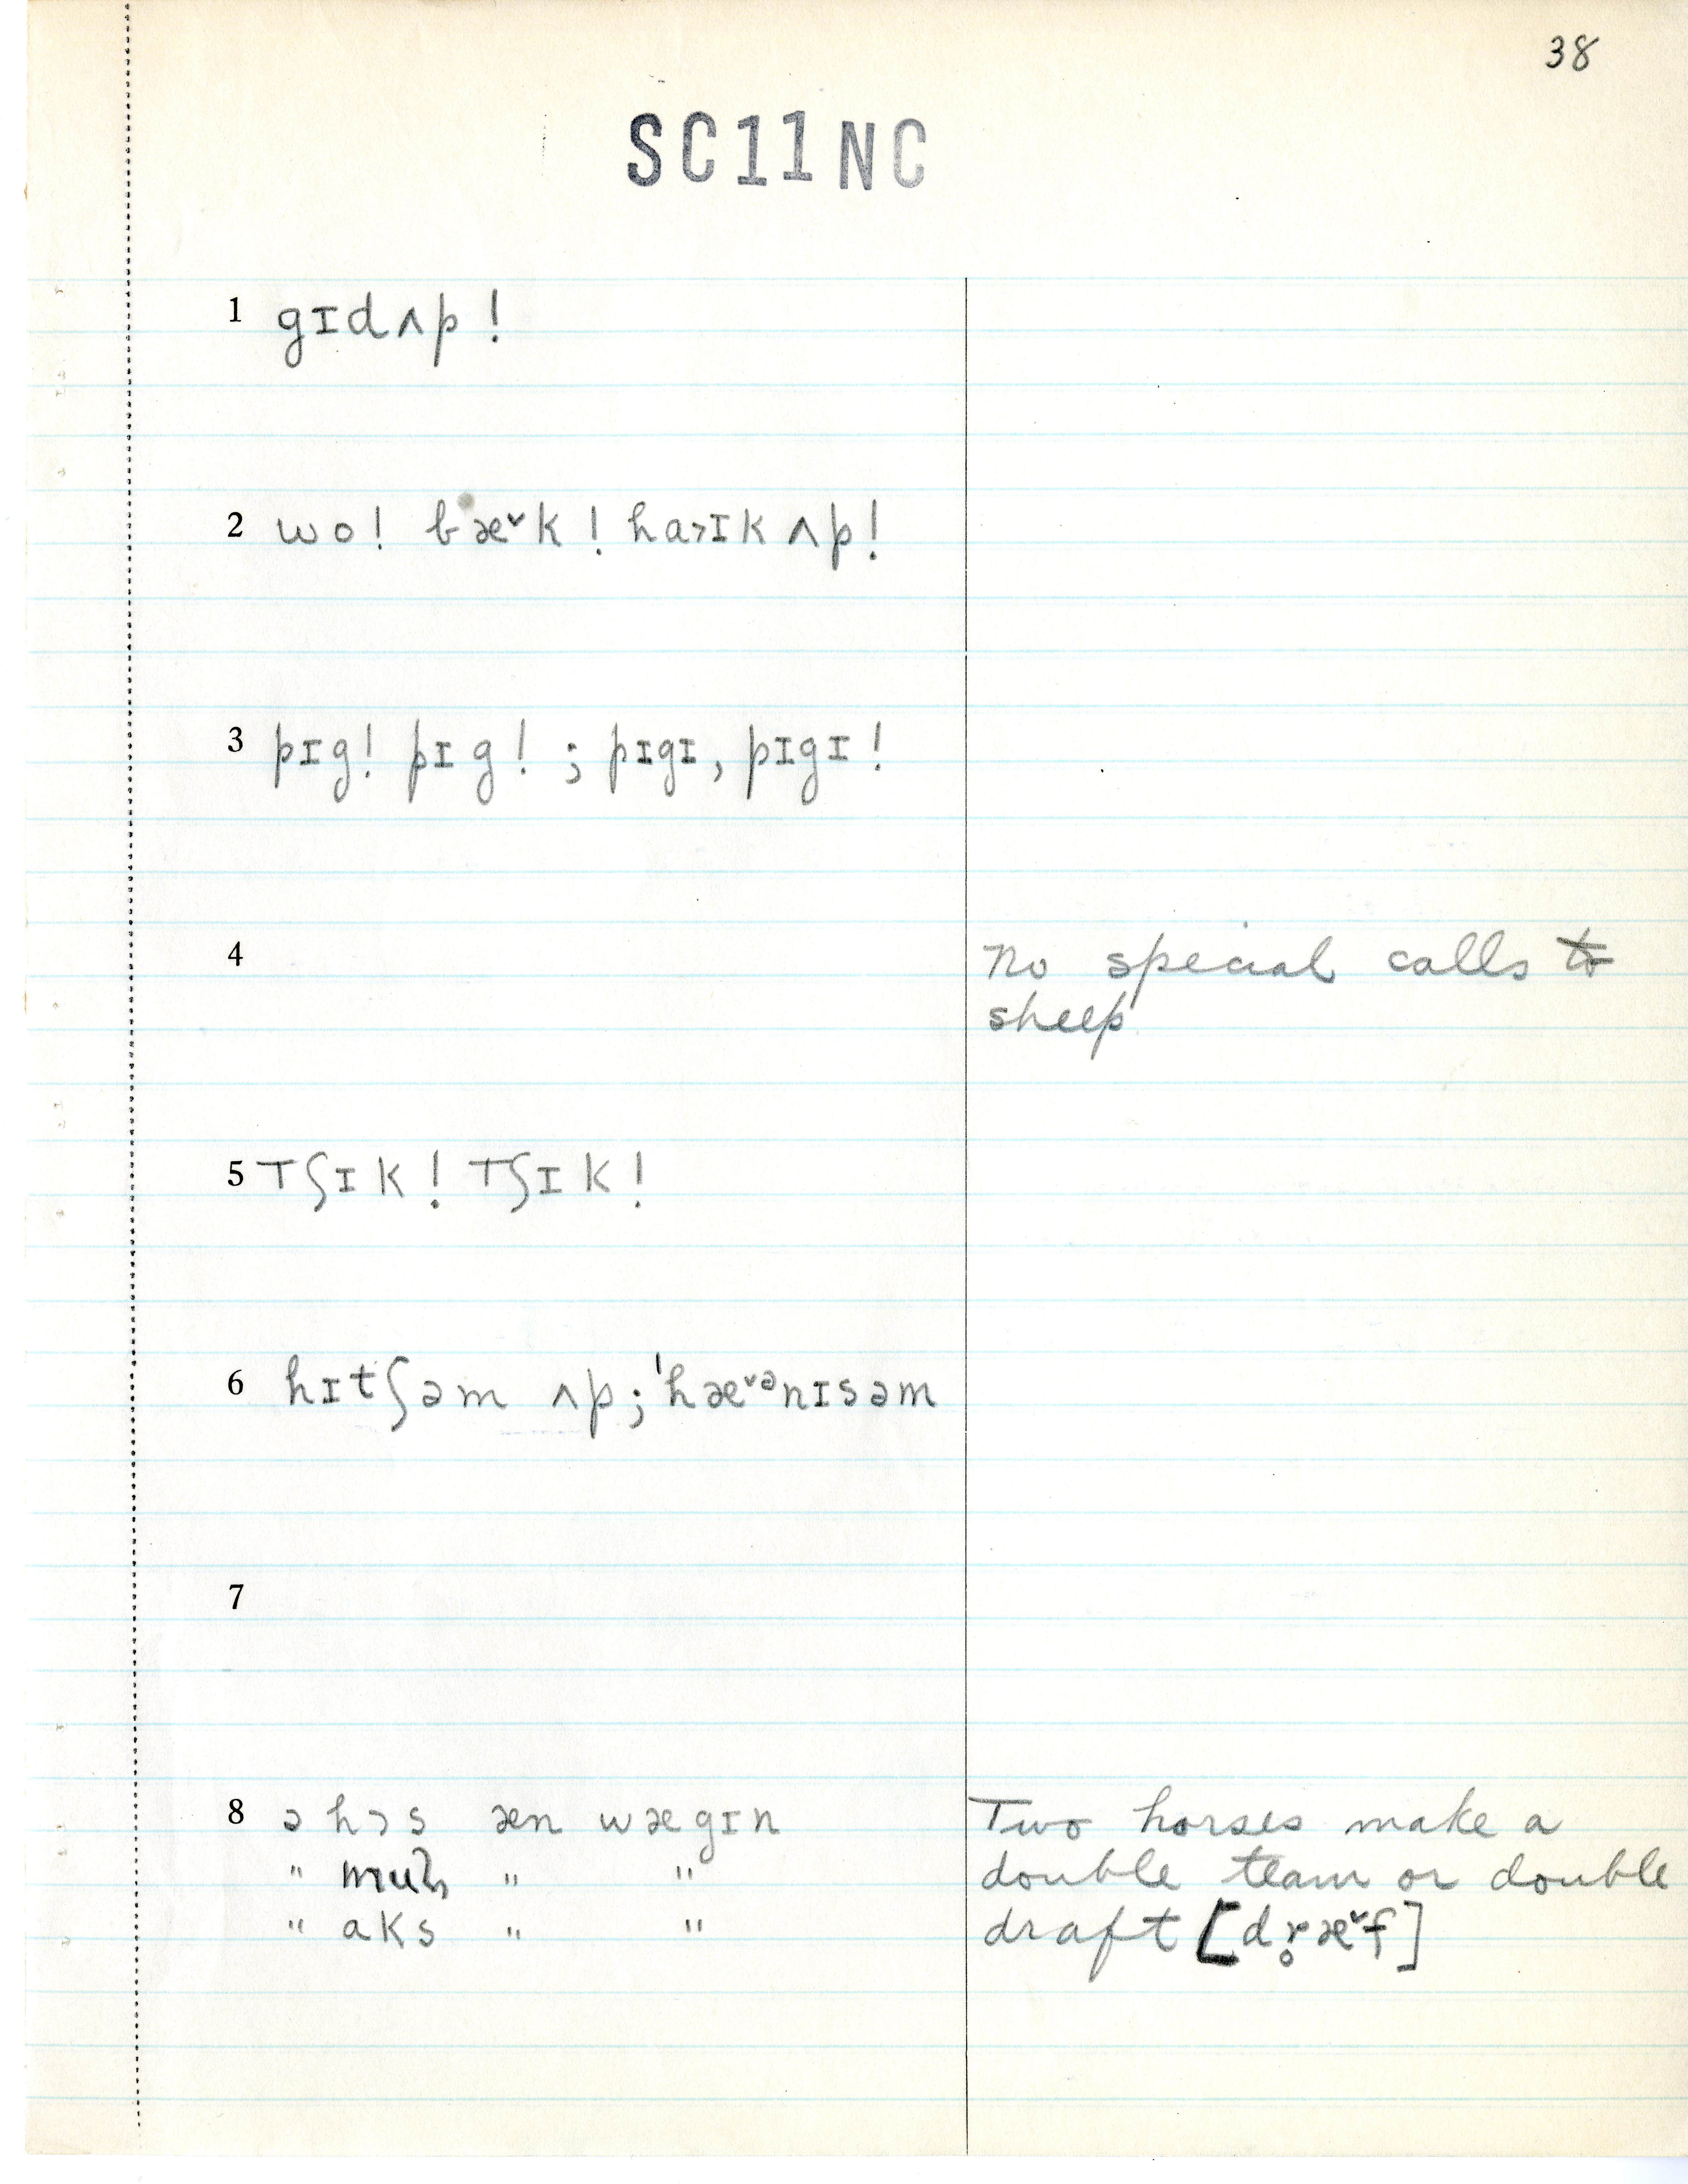 38
SC11NC
1 gɪdʌp!
2 wo! bæ˅k! haɪk ʌp!
3 pɪg! pɪg!; pɪgɪ, pɪgɪ!
4 No special calls to
sheep
5 tʃɪk! tʃɪk!
6 hɪtʃəm ʌp; ˈhæ˅ᵊnɪsəm
7
8 ə hɔs æn wægɪn Two horses make a
" " " double team or double
" aks " " draft [dr̥æ˅f]